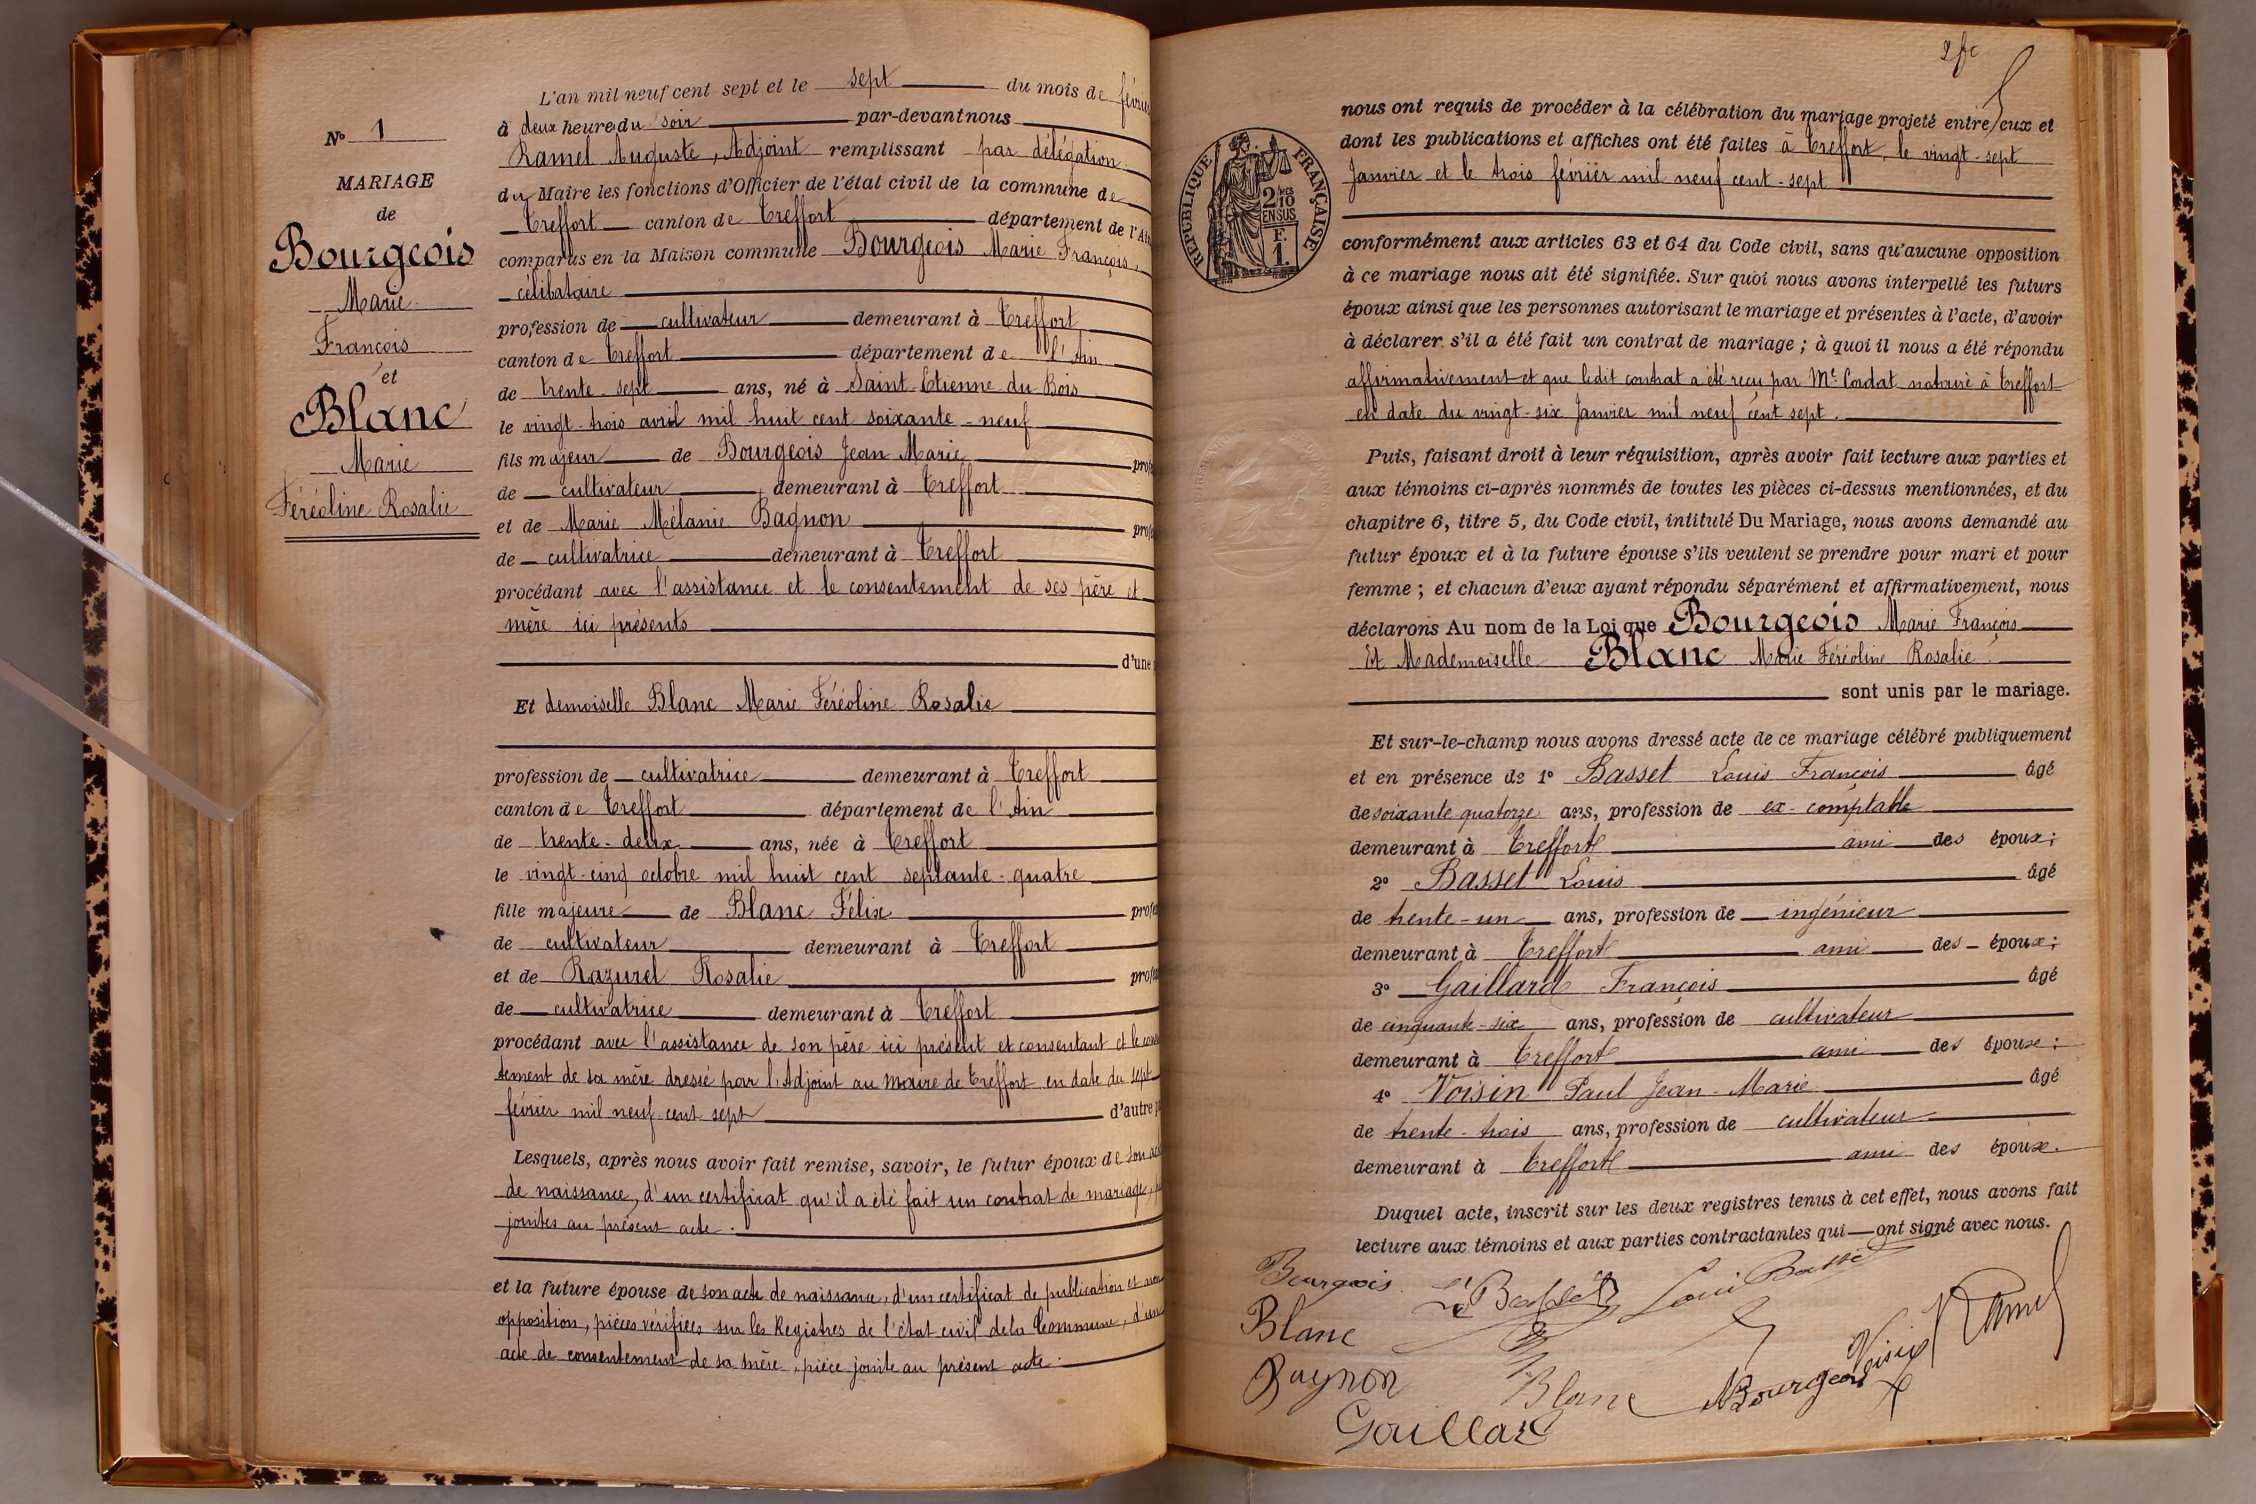 N° 1
MARIAGE
de
Bourgeois
Marie
François
et
Blanc
Marie
Féréoline Rosalie
L'an mil neuf cent sept et le sept du mois de février
à deux heure du soir par-devant nous
Ramel Auguste, Adjoint remplissant par délégation
du Maire les fonctions d'Officier de l'état civil de la commune de
Treffort canton de Treffort département de l'Ai
comparus en la Maison commune Bourgeois Marie François,
célibataire
profession de cultivateur demeurant à Treffort
canton de Treffort département de l'Ain
de trente-sept ans, né à Saint-Etienne-du-Bois
le vingt-trois avril mil huit cent soixante-neuf
fils majeur de Bourgeois Jean Marie prof
de cultivateur, demeurant à Treffort
et de Marie Mélanie Bagnon prof
de cultivatrice demeurant à Treffort
procédant avec l'assistance et le consentement de ses père et
mère ici présents
d'une
Et demoiselle Blanc Marie Féréoline Rosalie
profession de cultivatrice demeurant à Treffort
canton de Treffort département de l'Ain
de trente-deux ans, née à Treffort
le vingt-cinq octobre mil huit cent septante-quatre
fille majeure de Blanc Félix prof
de cultivateur demeurant à Treffort
et de Razurel Rosalie prof
de cultivatrice demeurant à Treffort
procédant avec l'assistance de son père ici présent et consentant et le conse
tement de sa mère dressé par l'Adjoint au maire de Treffort en date du sept
février mil neuf cent sept d'autre p
Lesquels, après nous avoir fait remise, savoir, le futur époux de son ac
de naissance, d'un certificat qu'il a été fait un contrat de mariage,
jointes au présent acte.
et la future épouse de son acte de naissance, d'un certificat de publication et non
opposition, pièces vérifiées sur les Registres de l'état civil de la Commune, d'un
acte de consentement de sa mère, pièce jointe au présent acte.
2 fc
REPUBLIQUE FRANÇAISE
2/10
EN SUS
F.
1.
nous ont requis de procéder à la célébration du mariage projeté entre eux et
dont les publications et affiches ont été faites à Treffort, le vingt-sept
Janvier et le trois février mil neuf cent-sept
conformément aux articles 63 et 64 du Code civil, sans qu'aucune opposition
à ce mariage nous ait été signifiée. Sur quoi nous avons interpellé les futurs
époux ainsi que les personnes autorisant le mariage et présentes à l'acte, d'avoir
à déclarer s'il a été fait un contrat de mariage ; à quoi il nous a été répondu
affirmativement et que ledit contrat a été reçu par Me Cordat notaire à Treffort
en date du vingt-six Janvier mil neuf cent sept.
Puis, faisant droit à leur réquisition, après avoir fait lecture aux parties et
aux témoins ci-après nommés de toutes les pièces ci-dessus mentionnées, et du
chapitre 6, titre 5, du Code civil, intitulé Du Mariage, nous avons demandé au
futur époux et à la future épouse s'ils veulent se prendre pour mari et pour
femme ; et chacun d'eux ayant répondu séparément et affirmativement, nous
déclarons Au nom de la Loi que Bourgeois Marie François
Et Mademoiselle Blanc Marie Féréoline Rosalie
sont unis par le mariage.
Et sur-le-champ nous avons dressé acte de ce mariage célébré publiquement
et en présence de 1° Basset Louis François âgé
de soixante quatorze ans, profession de ex-comptable
demeurant à Treffort ami des époux ;
2° Basset Louis âgé
de trente-un ans, profession de ingénieur
demeurant à Treffort ami des époux ;
3° Gaillard François âgé
de cinquante-six ans, profession de cultivateur
demeurant à Treffort ami des époux ;
4° Voisin Paul Jean-Marie âgé
de trente-trois ans, profession de cultivateur
demeurant à Treffort ami des époux.
Duquel acte, inscrit sur les deux registres tenus à cet effet, nous avons fait
lecture aux témoins et aux parties contractantes qui ont signé avec nous.
Bourgeois Ls Basset Louis Basset
Blanc Voisin Ramel
Bagnon Blanc Bourgeois
Gaillard